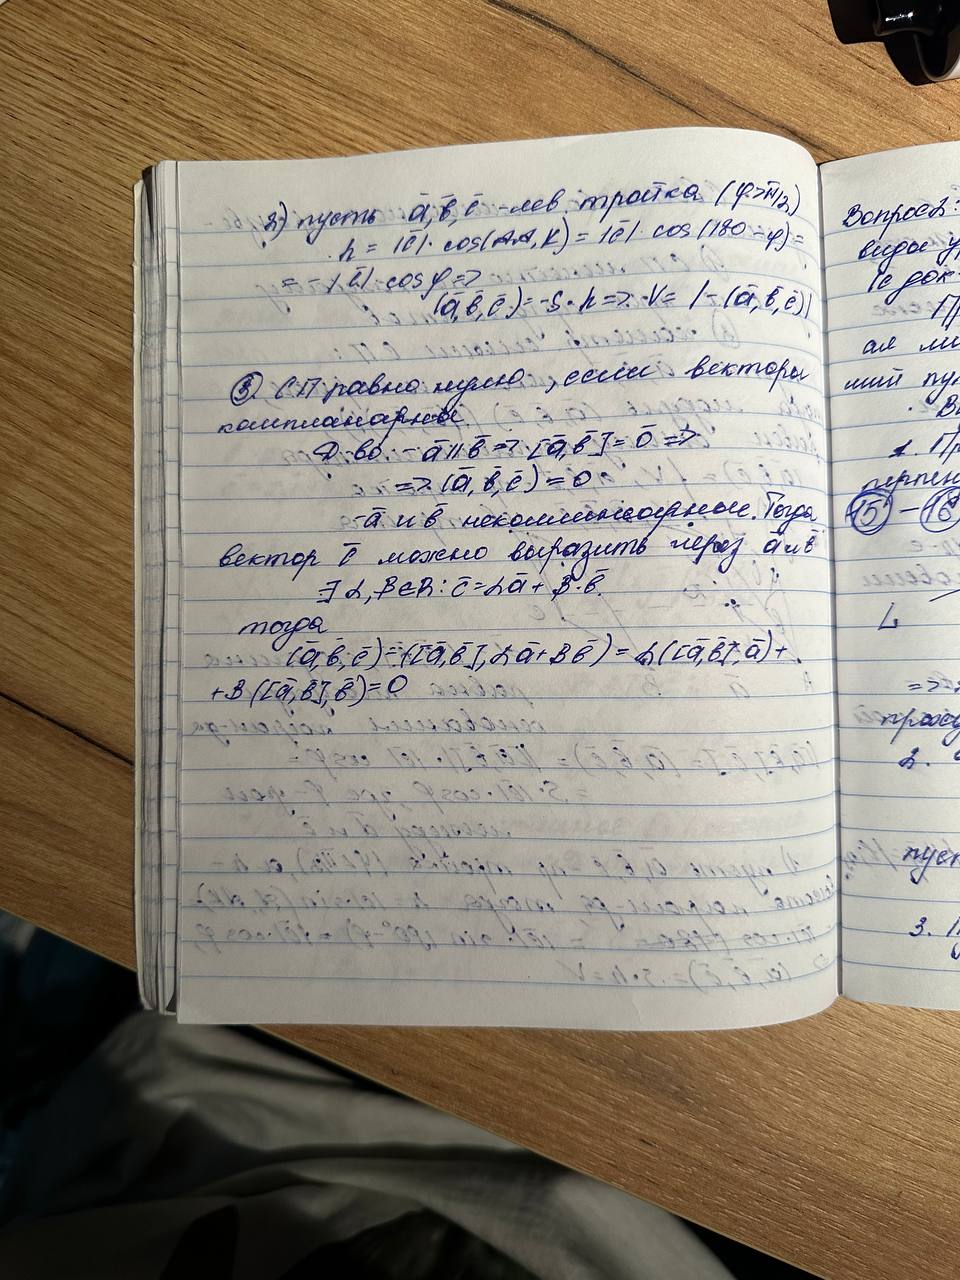 2) пусть ā, b̄, c̄ - лев тройка (φ>π/2)
h = |c̄|· cos(AA,K) = |c̄| · cos(180-φ) =
= -|c̄| cosφ =>
(ā,b̄,c̄) = -S·h => V = |-(ā,b̄,c̄)|
③ СП равно нулю, если векторы
компланарны.
Д-во: - ā || b̄ => [ā,b̄] = ō =>
=> (ā,b̄,c̄) = 0
- ā и b̄ неколлинеарные. Тогда
вектор c̄ можно выразить через ā и b̄
∃ α, β ∈ R: c̄ = αā + β·b̄.
тогда
(ā,b̄,c̄) = ([ā,b̄], αā + βb̄) = α([ā,b̄],ā) +
+ β([ā,b̄],b̄) = 0
Вопрос 2:
виды у
(с док-
П
ая ли
ший пу
В
1. Пр
перпен
⑮ - ⑯
=>
2.
пуст
3. П